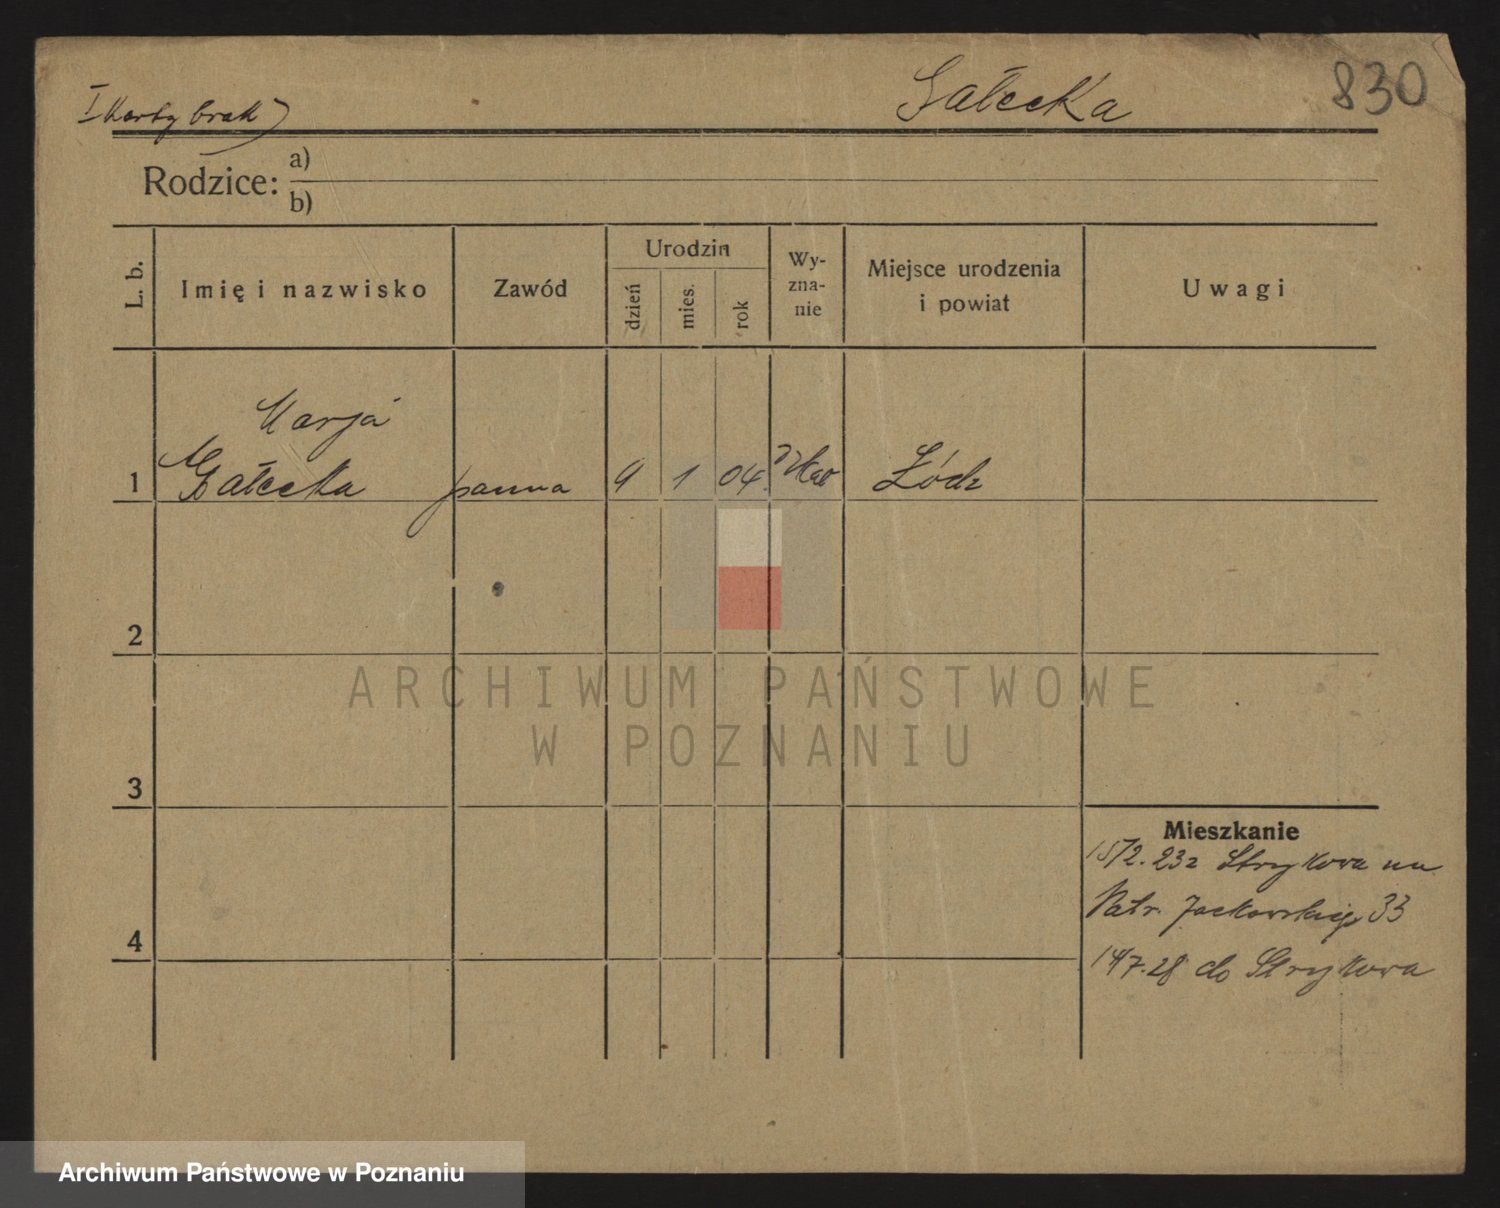 Gałecka 830
I karty brak)
Rodzice: a)
b)
L. b.
Imię i nazwisko
Zawód
Urodzin
dzień
mies.
rok
Wy-
zna-
nie
Miejsce urodzenia
i powiat
Uwagi
Marja
1 Gałecka panna 9 1 04 Łódz
2
3
4
Mieszkanie
15/2. 23 z Strykowa na
Patr. Jackowskiego 33
14/7. 28 do Strykowa
ARCHIWUM PAŃSTWOWE
W POZNANIU
Archiwum Państwowe w Poznaniu